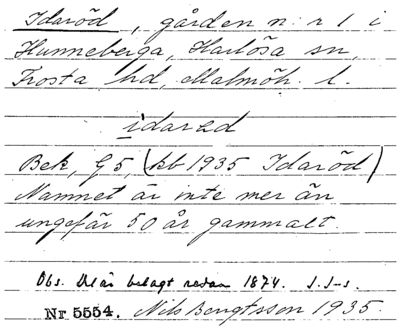 Idaröd, gården n:r 1 i
Hunneberga, Harlösa sn,
Frosta hd, Malmöh. l.
idarød
Bek, G5, (kb 1935 Idaröd)
Namnet är inte mer än
ungefär 50 år gammalt.
Obs. Det är belagt redan 1874. I.I-s.
Nr 5554. Nils Bengtsson 1935.